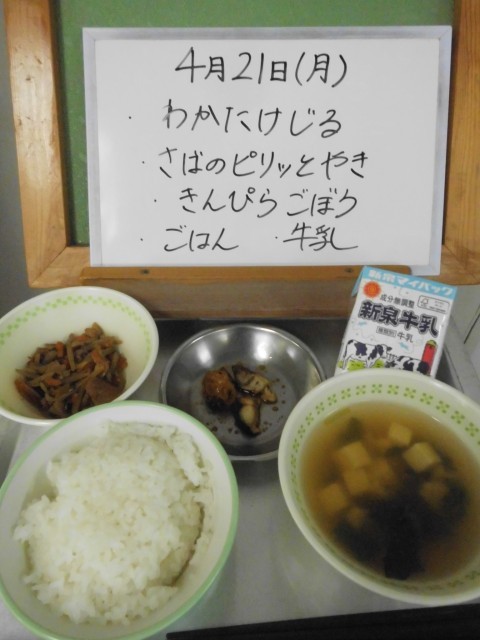 4月21日(月)
・わかたけじる
・さばのピリッとやき
・きんぴらごぼう
・ごはん ・牛乳
新泉マイパック
成分無調整
新泉牛乳
牛乳